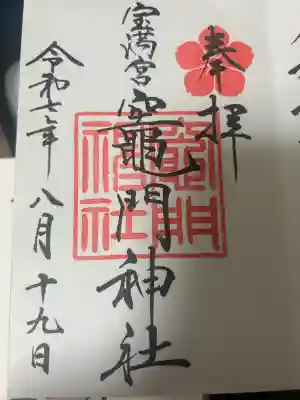 奉拝
宝満宮
竈門神社
令和七年
八月十九日
竈門
神社